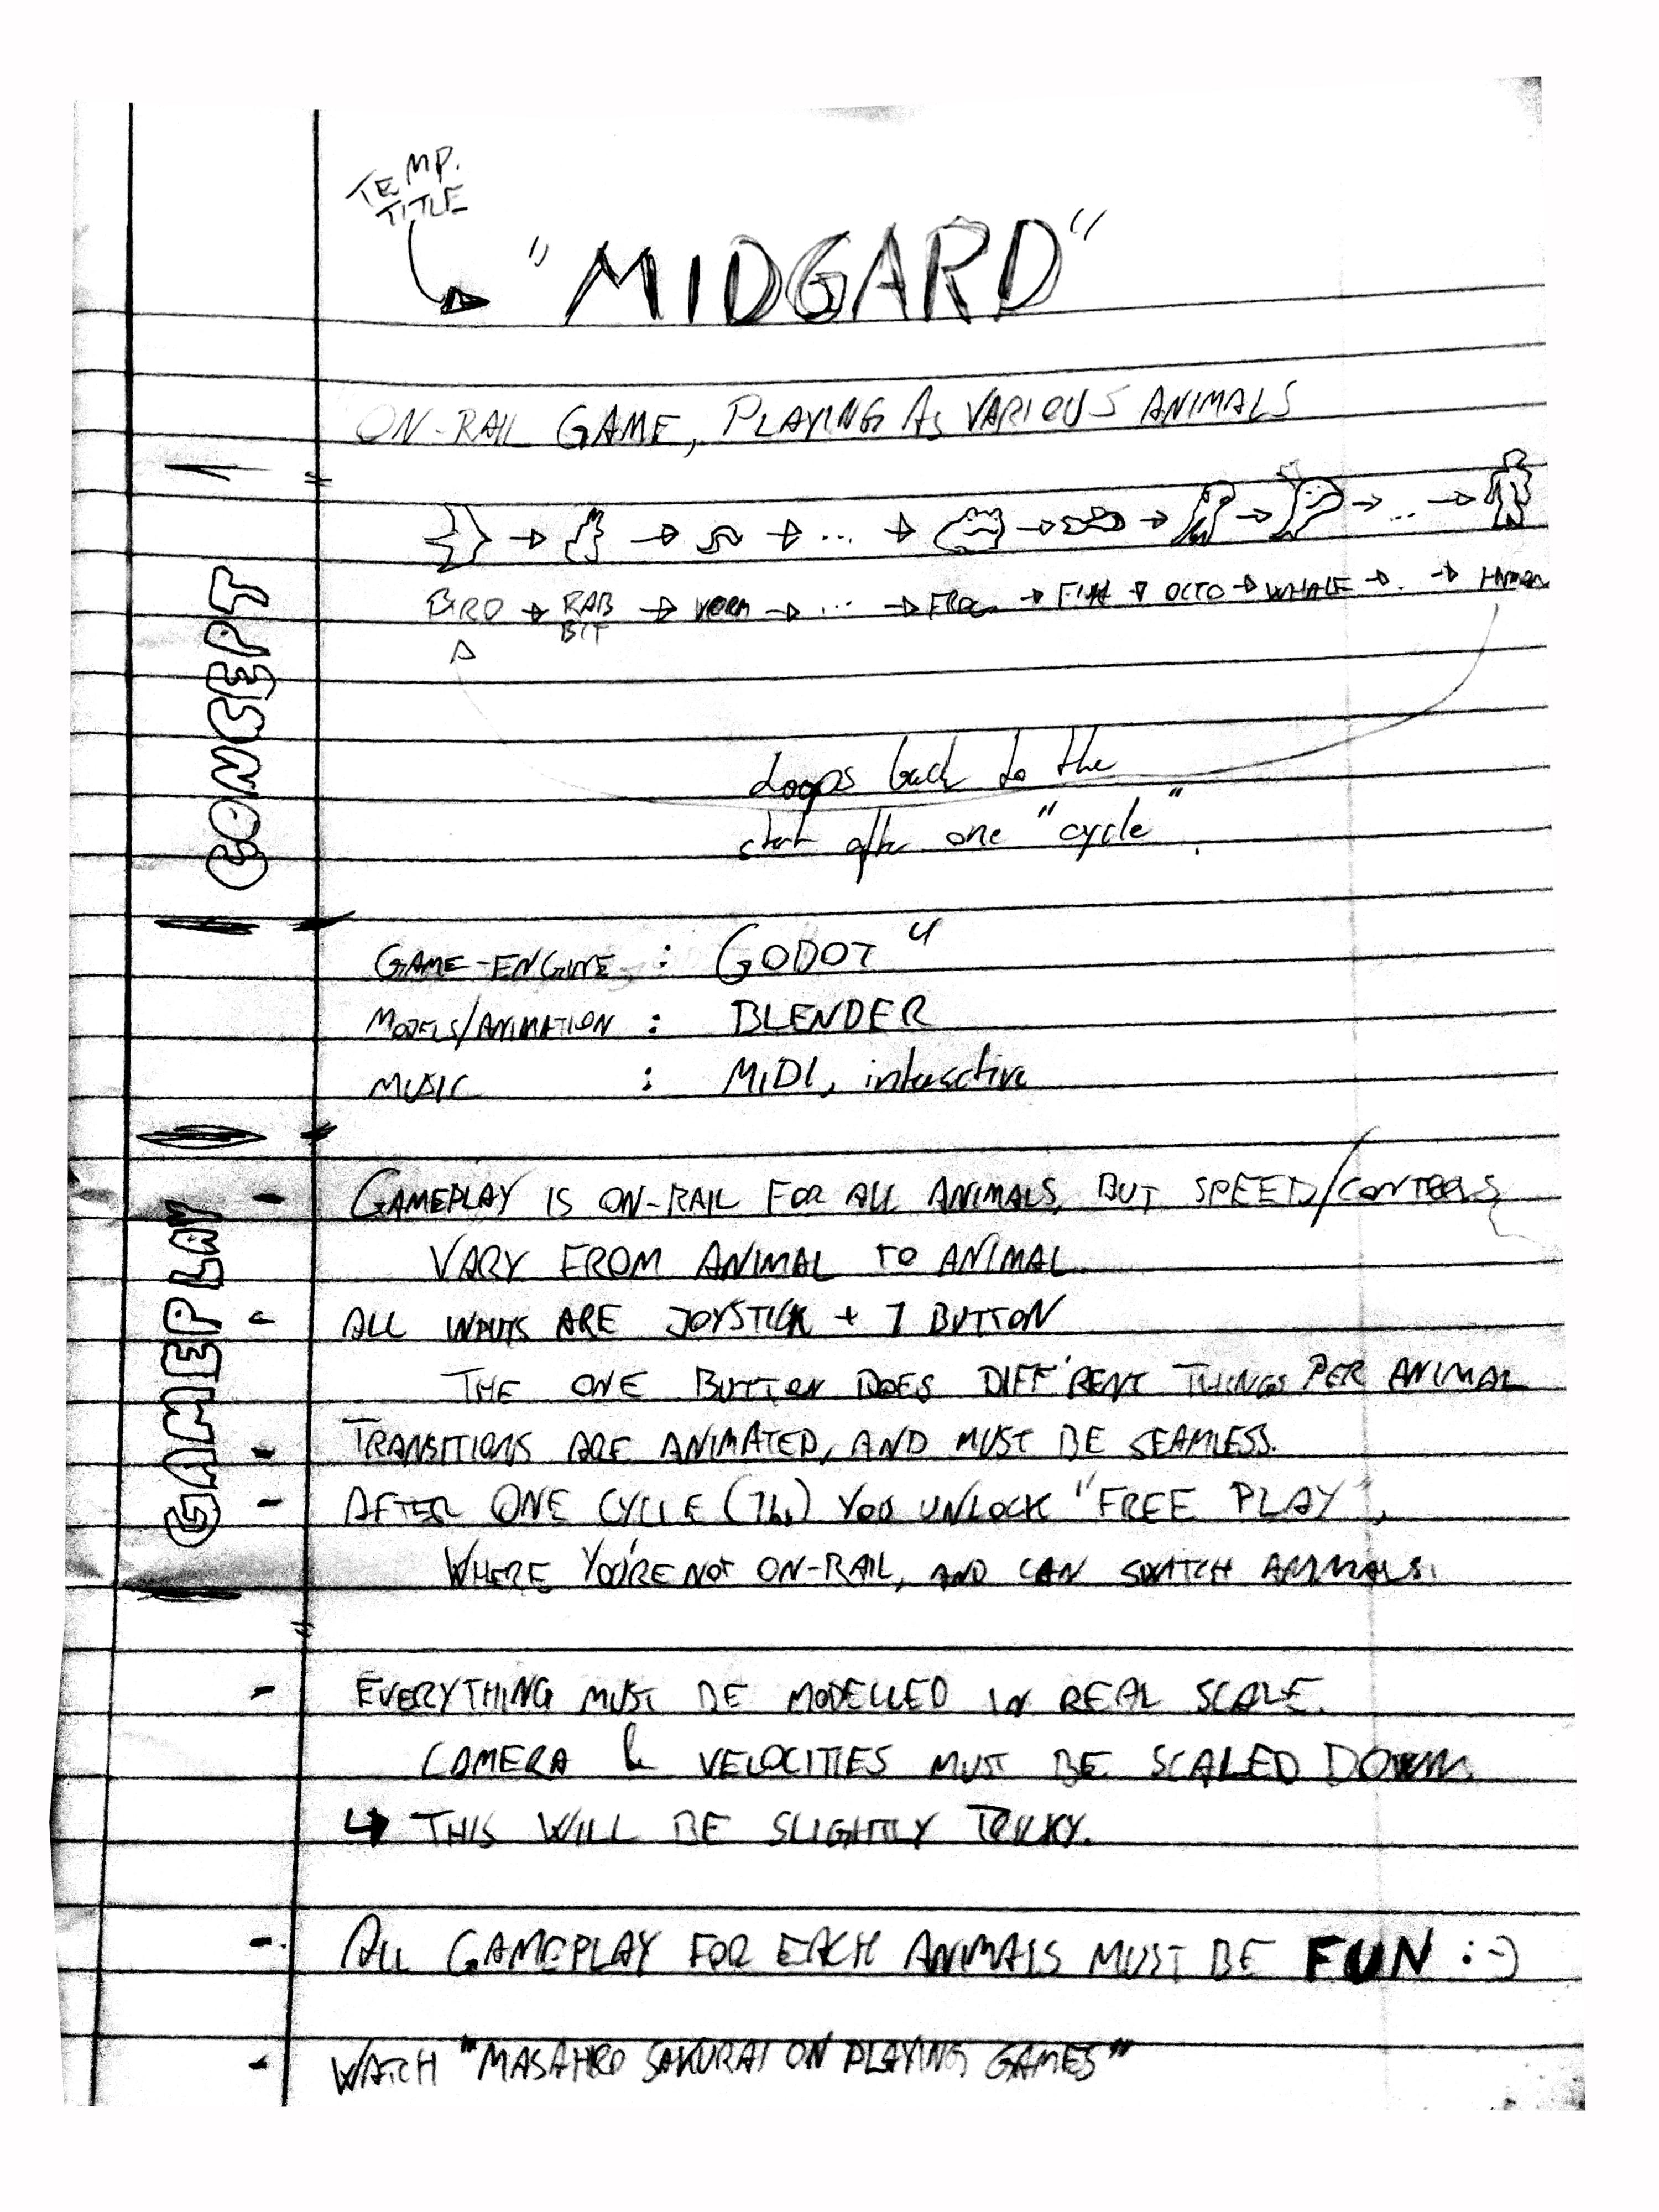 TEMP.
TITLE
"MIDGARD"
ON-RAIL GAME, PLAYING AS VARIOUS ANIMALS
→ → → ... → → → → ... →
BIRD → RAB → WORM → ... → FROG → FISH → OCTO → WHALE → .. → HUMAN
BIT
Loops back to the
start after one "cycle".
CONCEPT
GAME-ENGINE : GODOT 4
MODELS/ANIMATION : BLENDER
MUSIC : MIDI, interactive
GAMEPLAY
- GAMEPLAY IS ON-RAIL FOR ALL ANIMALS, BUT SPEED/CONTROLS
VARY FROM ANIMAL TO ANIMAL
- ALL INPUTS ARE JOYSTICK + 1 BUTTON
THE ONE BUTTON DOES DIFF'RENT THINGS PER ANIMAL
- TRANSITIONS ARE ANIMATED, AND MUST BE SEAMLESS.
- AFTER ONE CYCLE (1h) YOU UNLOCK "FREE PLAY",
WHERE YOU'RE NOT ON-RAIL, AND CAN SWITCH ANIMALS.
- EVERYTHING MUST BE MODELLED IN REAL SCALE.
CAMERA & VELOCITIES MUST BE SCALED DOWN.
↳ THIS WILL BE SLIGHTLY TRICKY.
- ALL GAMEPLAY FOR EACH ANIMALS MUST BE FUN :-)
- WATCH "MASAHIRO SAKURAI ON PLAYING GAMES"